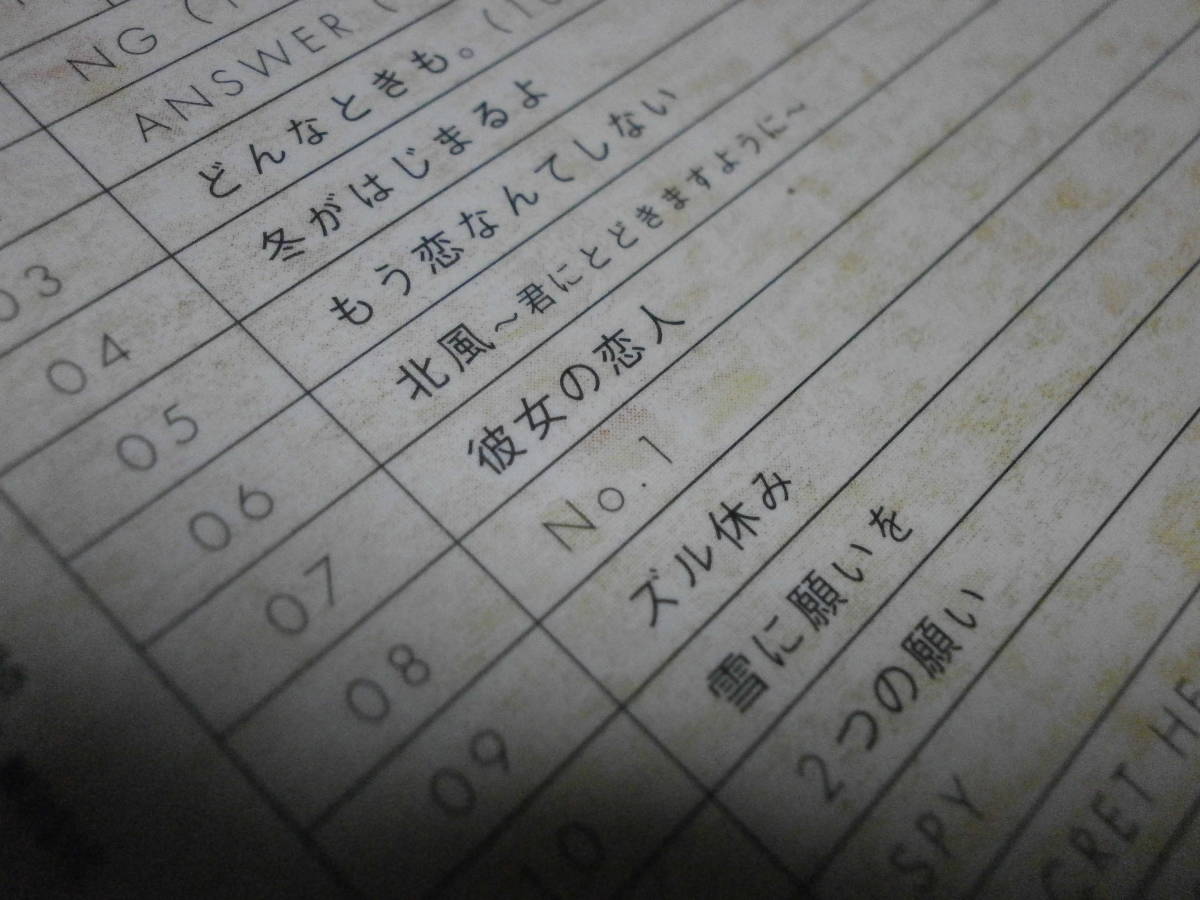 NG (1
ANSWER (
03 どんなときも。(1
04 冬がはじまるよ
05 もう恋なんてしない
06 北風~君にとどきますように~
07 彼女の恋人
08 No.1
09 ズル休み
10 雪に願いを
2つの願い
SPY
CRET HE